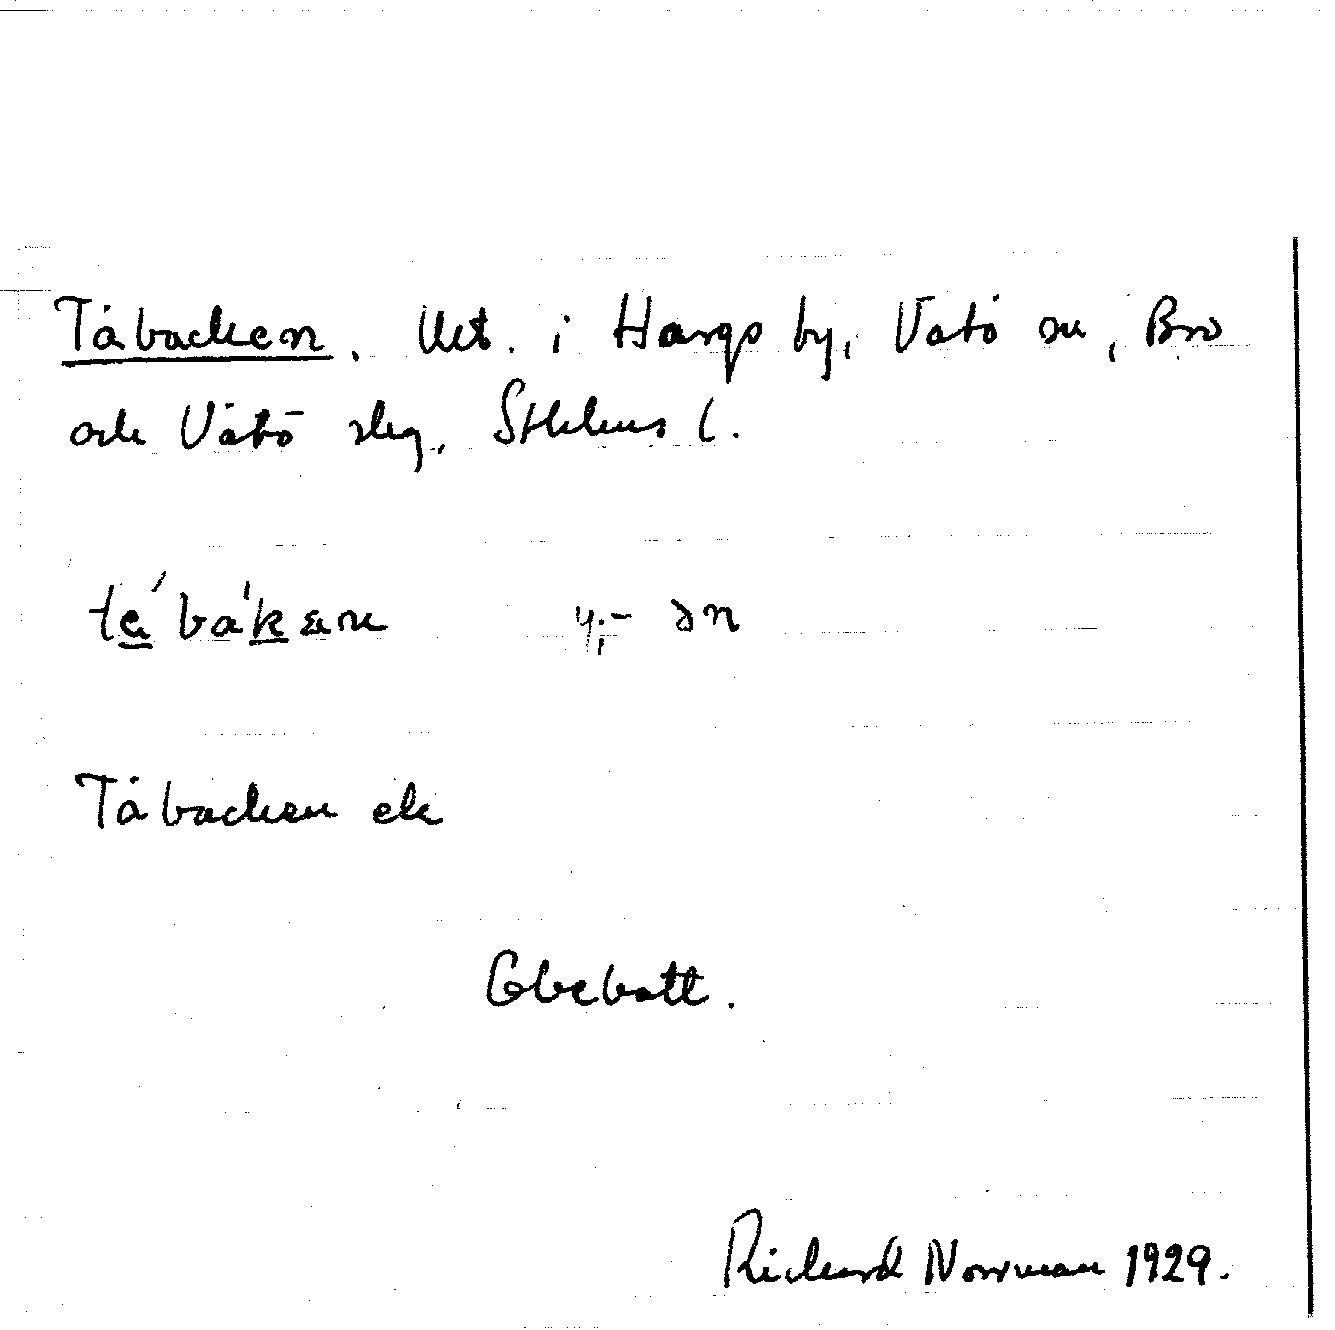 Tåbacken. Urt. i Hargs by, Vätö sn, Bro
och Vätö skg, Sthlms l.
y.- ən
Tåbacken ek
Obebott.
Richard Norrman 1929.